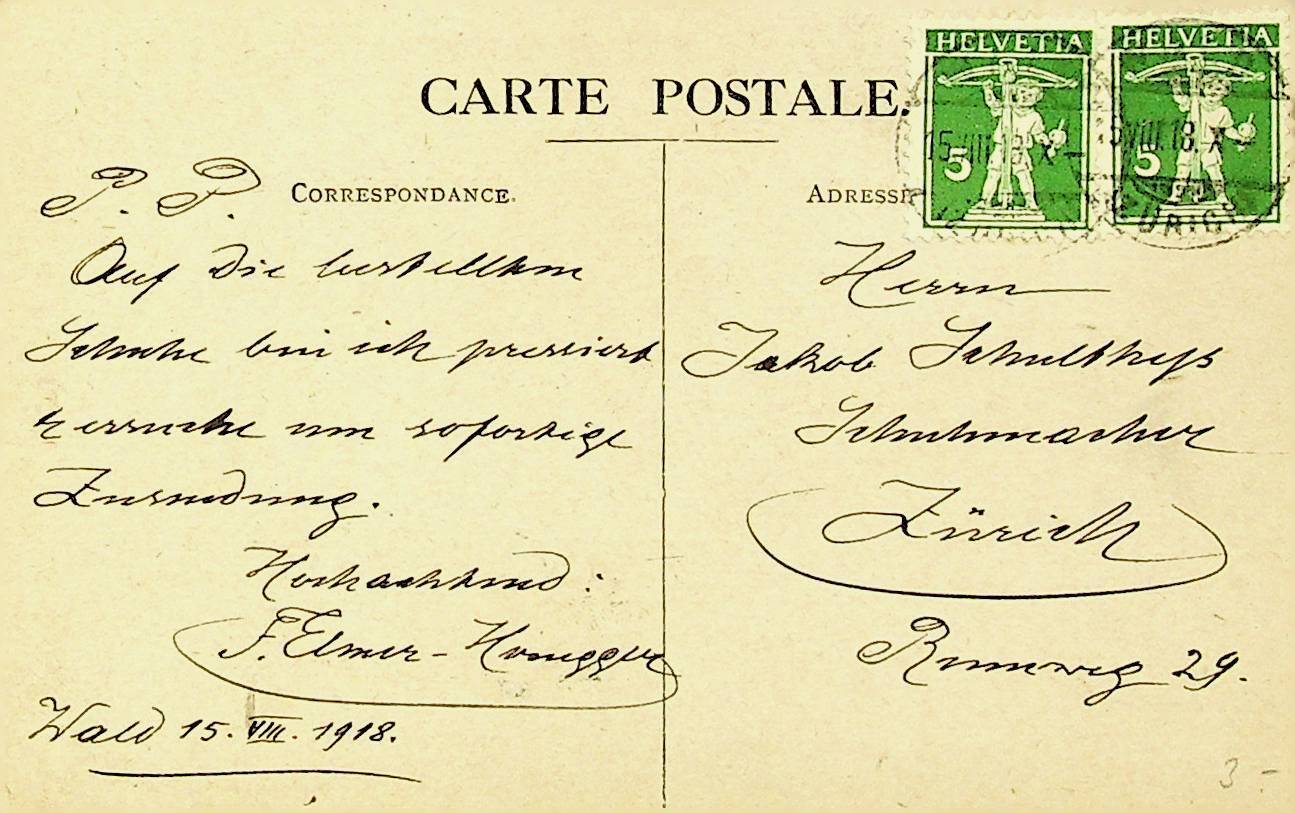 CARTE POSTALE.
HELVETIA
HELVETIA
5
5
CORRESPONDANCE.
P. P.
Auf die bestellten
Schuhe bin ich pressiert
ersuche um sofortige
Zusendung.
Hochachtend:
F. Elmer-Honegger
Wald 15. VIII. 1918.
Herrn
Jakob Schulthess
Schuhmacher
Zürich
29.
3-